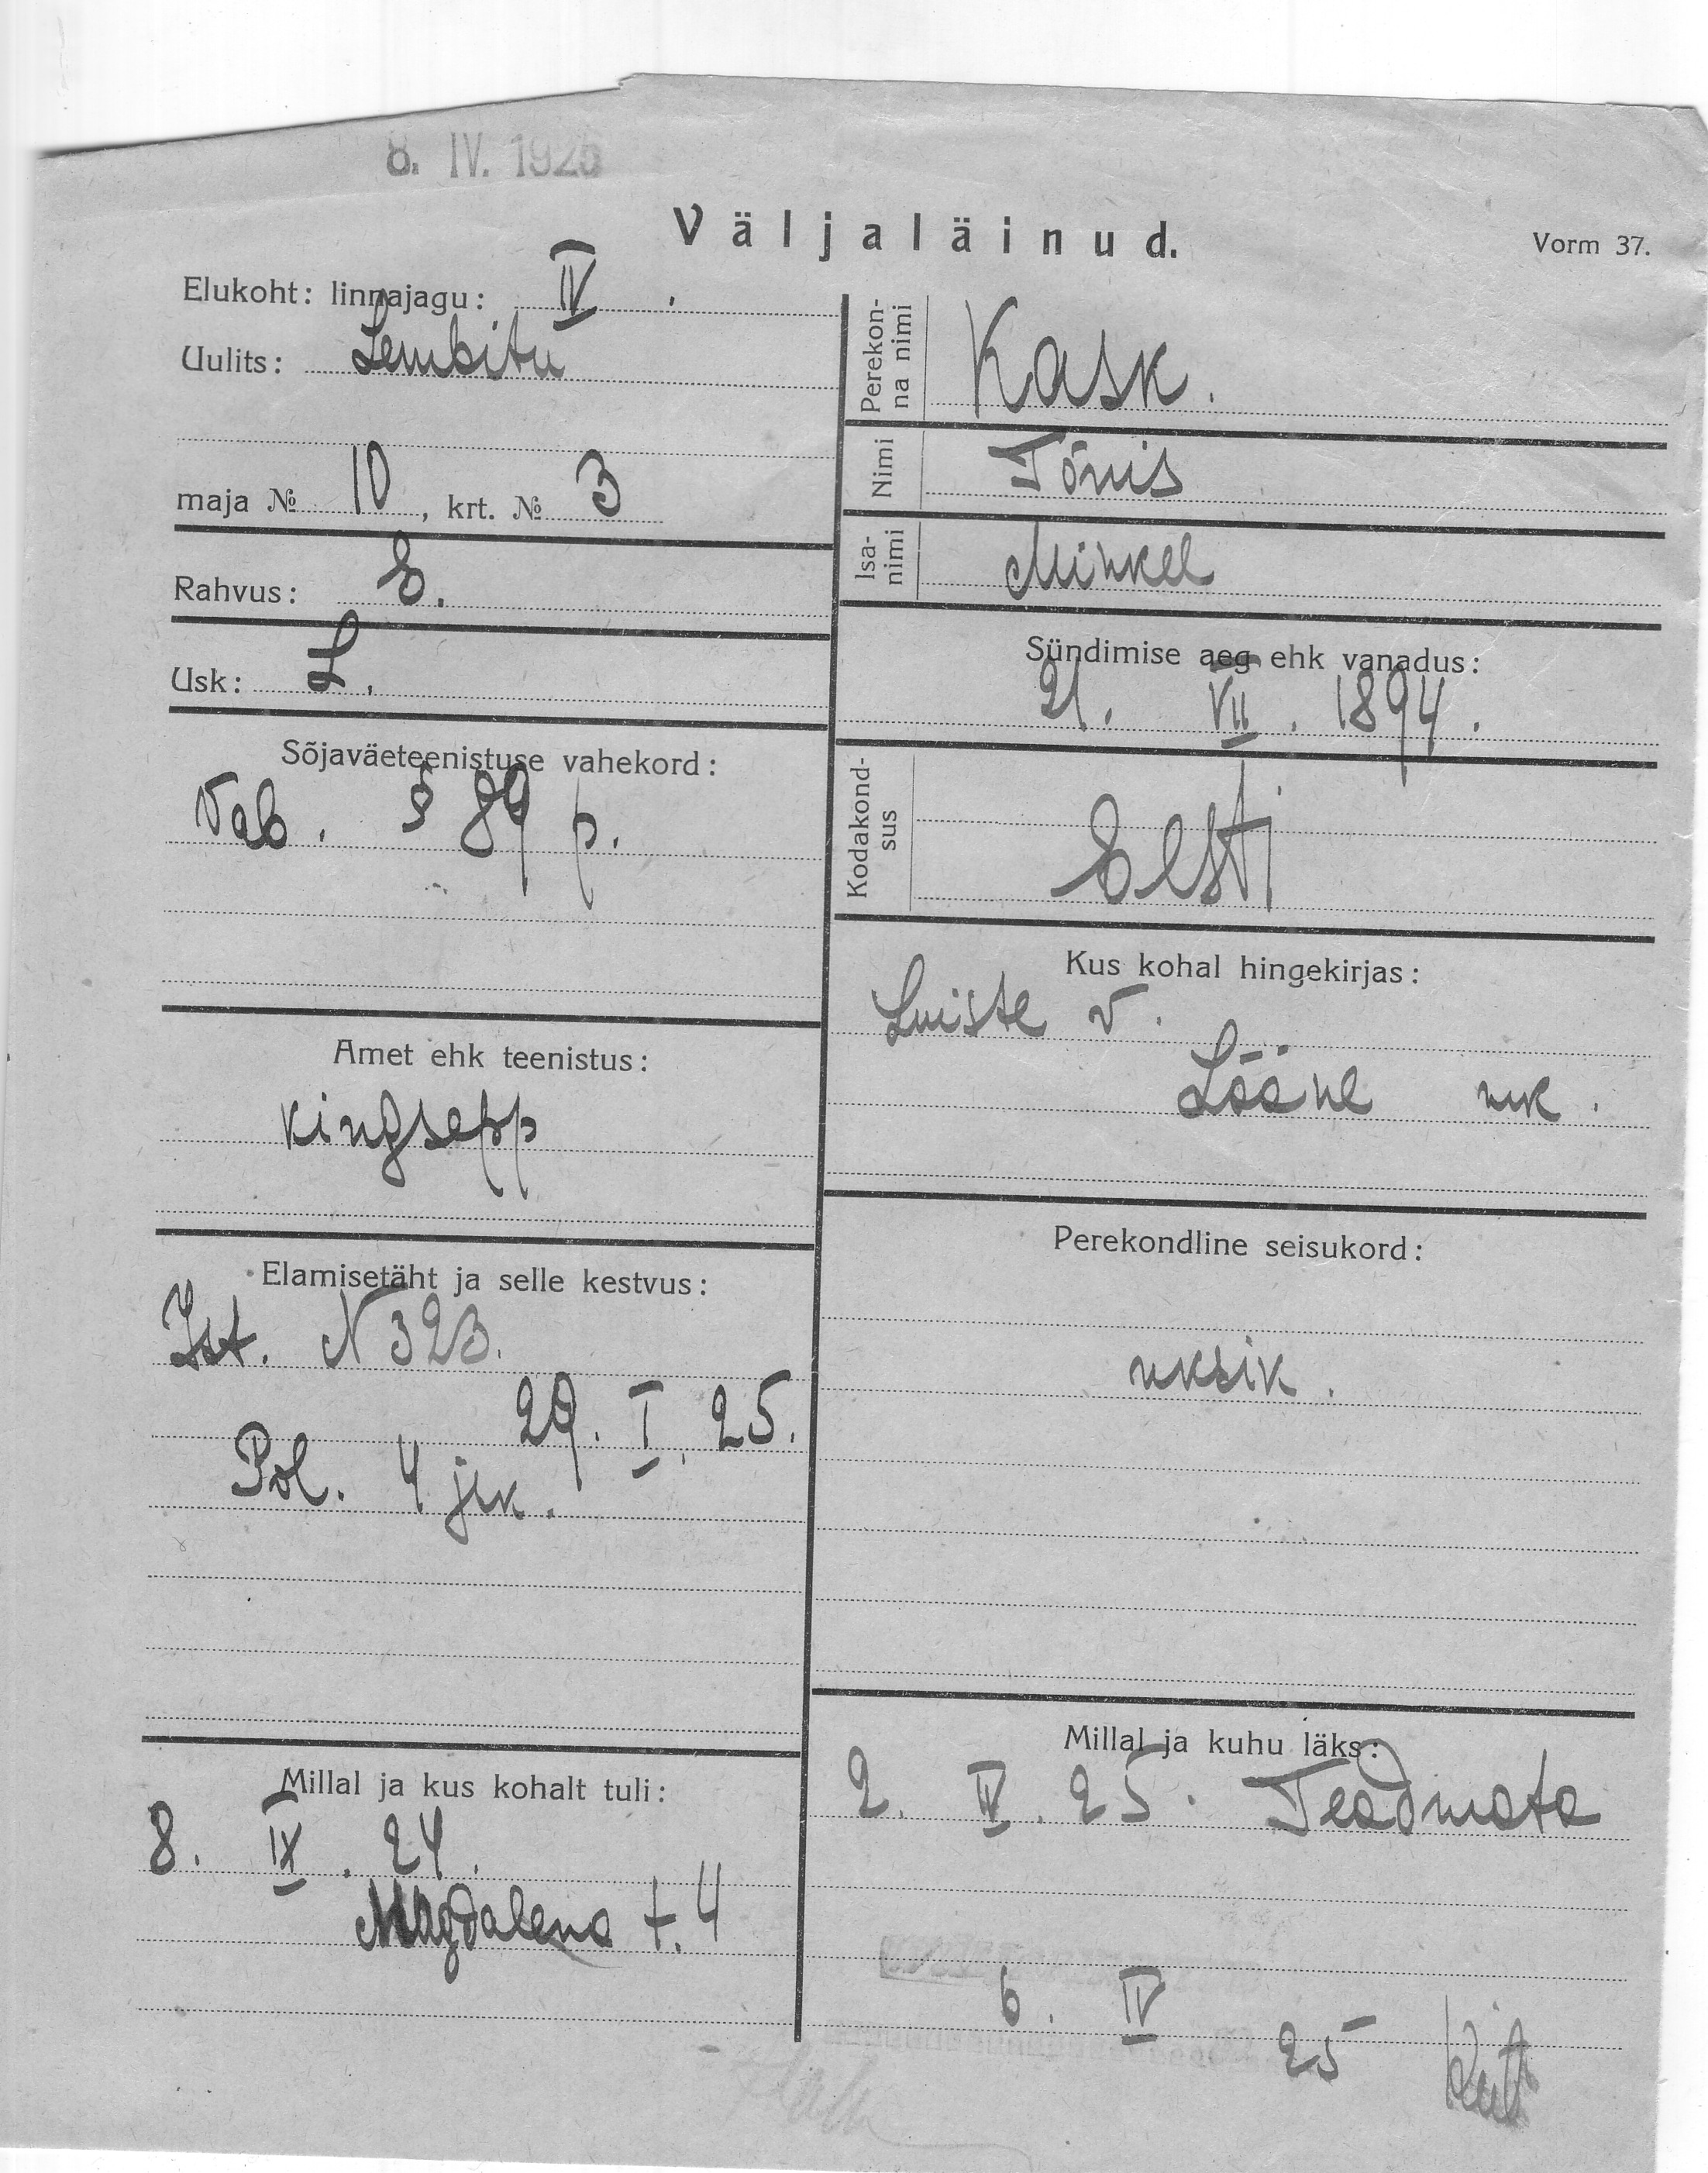 8. IV. 1925
Väljaläinud.
Vorm 37.
Elukoht: linnajagu: IV.
Uulits: Lembitu
maja № 10, krt. № 3
Rahvus: E.
Usk: L.
Sõjaväeteenistuse vahekord:
Vab. § 89 p.
Amet ehk teenistus:
kingsepp
Elamisetäht ja selle kestvus:
Ist. N 323.
29. I. 25.
Pol. 4 jsk.
Millal ja kus kohalt tuli:
8. IX. 24.
Magdalena t. 4
Perekon-
na nimi
Kask.
Nimi
Tõnis
Isa-
nimi
Mihkel
Sündimise aeg ehk vanadus:
21. VII. 1894.
Kodakond-
sus
Eesti
Kus kohal hingekirjas:
Luiste v.
Lääne mk.
Perekondline seisukord:
üksik.
Millal ja kuhu läks:
2. IV. 25. Teadmata
6. IV
25